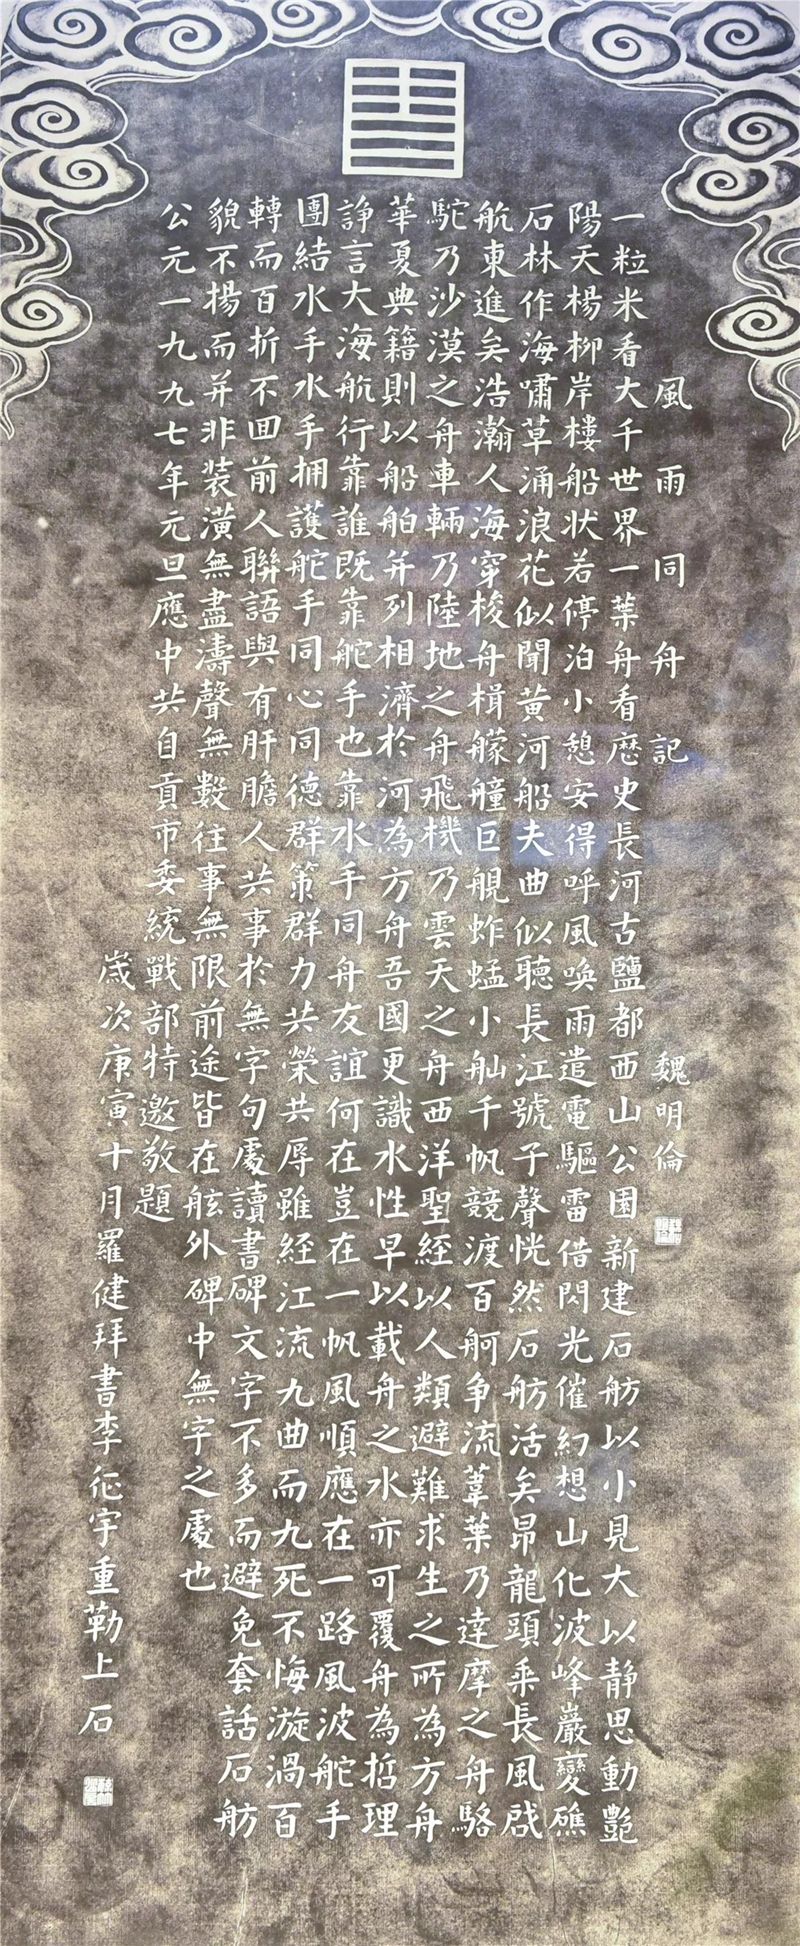 風雨同舟記 魏明倫
一粒米看大千世界一葉舟看歷史長河古鹽都西山公園新建石舫以小見大以静思動艷
陽天楊柳岸樓船狀若停泊小憩安得呼風唤雨遣電驅雷借閃光催幻想山化波峰巖變礁
石林作海嘯草涌浪花似聞黃河船夫曲似聽長江號子聲恍然石舫活矣昂龍頭乘長風啟
航東進矣浩瀚人海穿梭舟楫艨艟巨艦蚱蜢小舢千帆競渡百舸争流葦葉乃達摩之舟駱
駝乃沙漠之舟車輛乃陸地之舟飛機乃雲天之舟西洋聖經以人類避難求生之所為方舟
華夏典籍則以船舶并列相濟於河為方舟吾國更識水性早以載舟之水亦可覆舟為哲理
諍言大海航行靠誰既靠舵手也靠水手同舟友誼何在豈在一帆風順應在一路風波舵手
團結水手水手拥護舵手同心同德群策群力共榮共辱雖經江流九曲而九死不悔漩渦百
轉而百折不回前人聯語與有肝膽人共事於無字句處讀書碑文字不多而避免套話石舫
貌不揚而并非装潢無盡濤聲無數往事無限前途皆在舷外碑中無字之處也
公元一九九七年元旦應中共自貢市委統戰部特邀敬題
歲次庚寅十月羅健拜書李征宇重勒上石